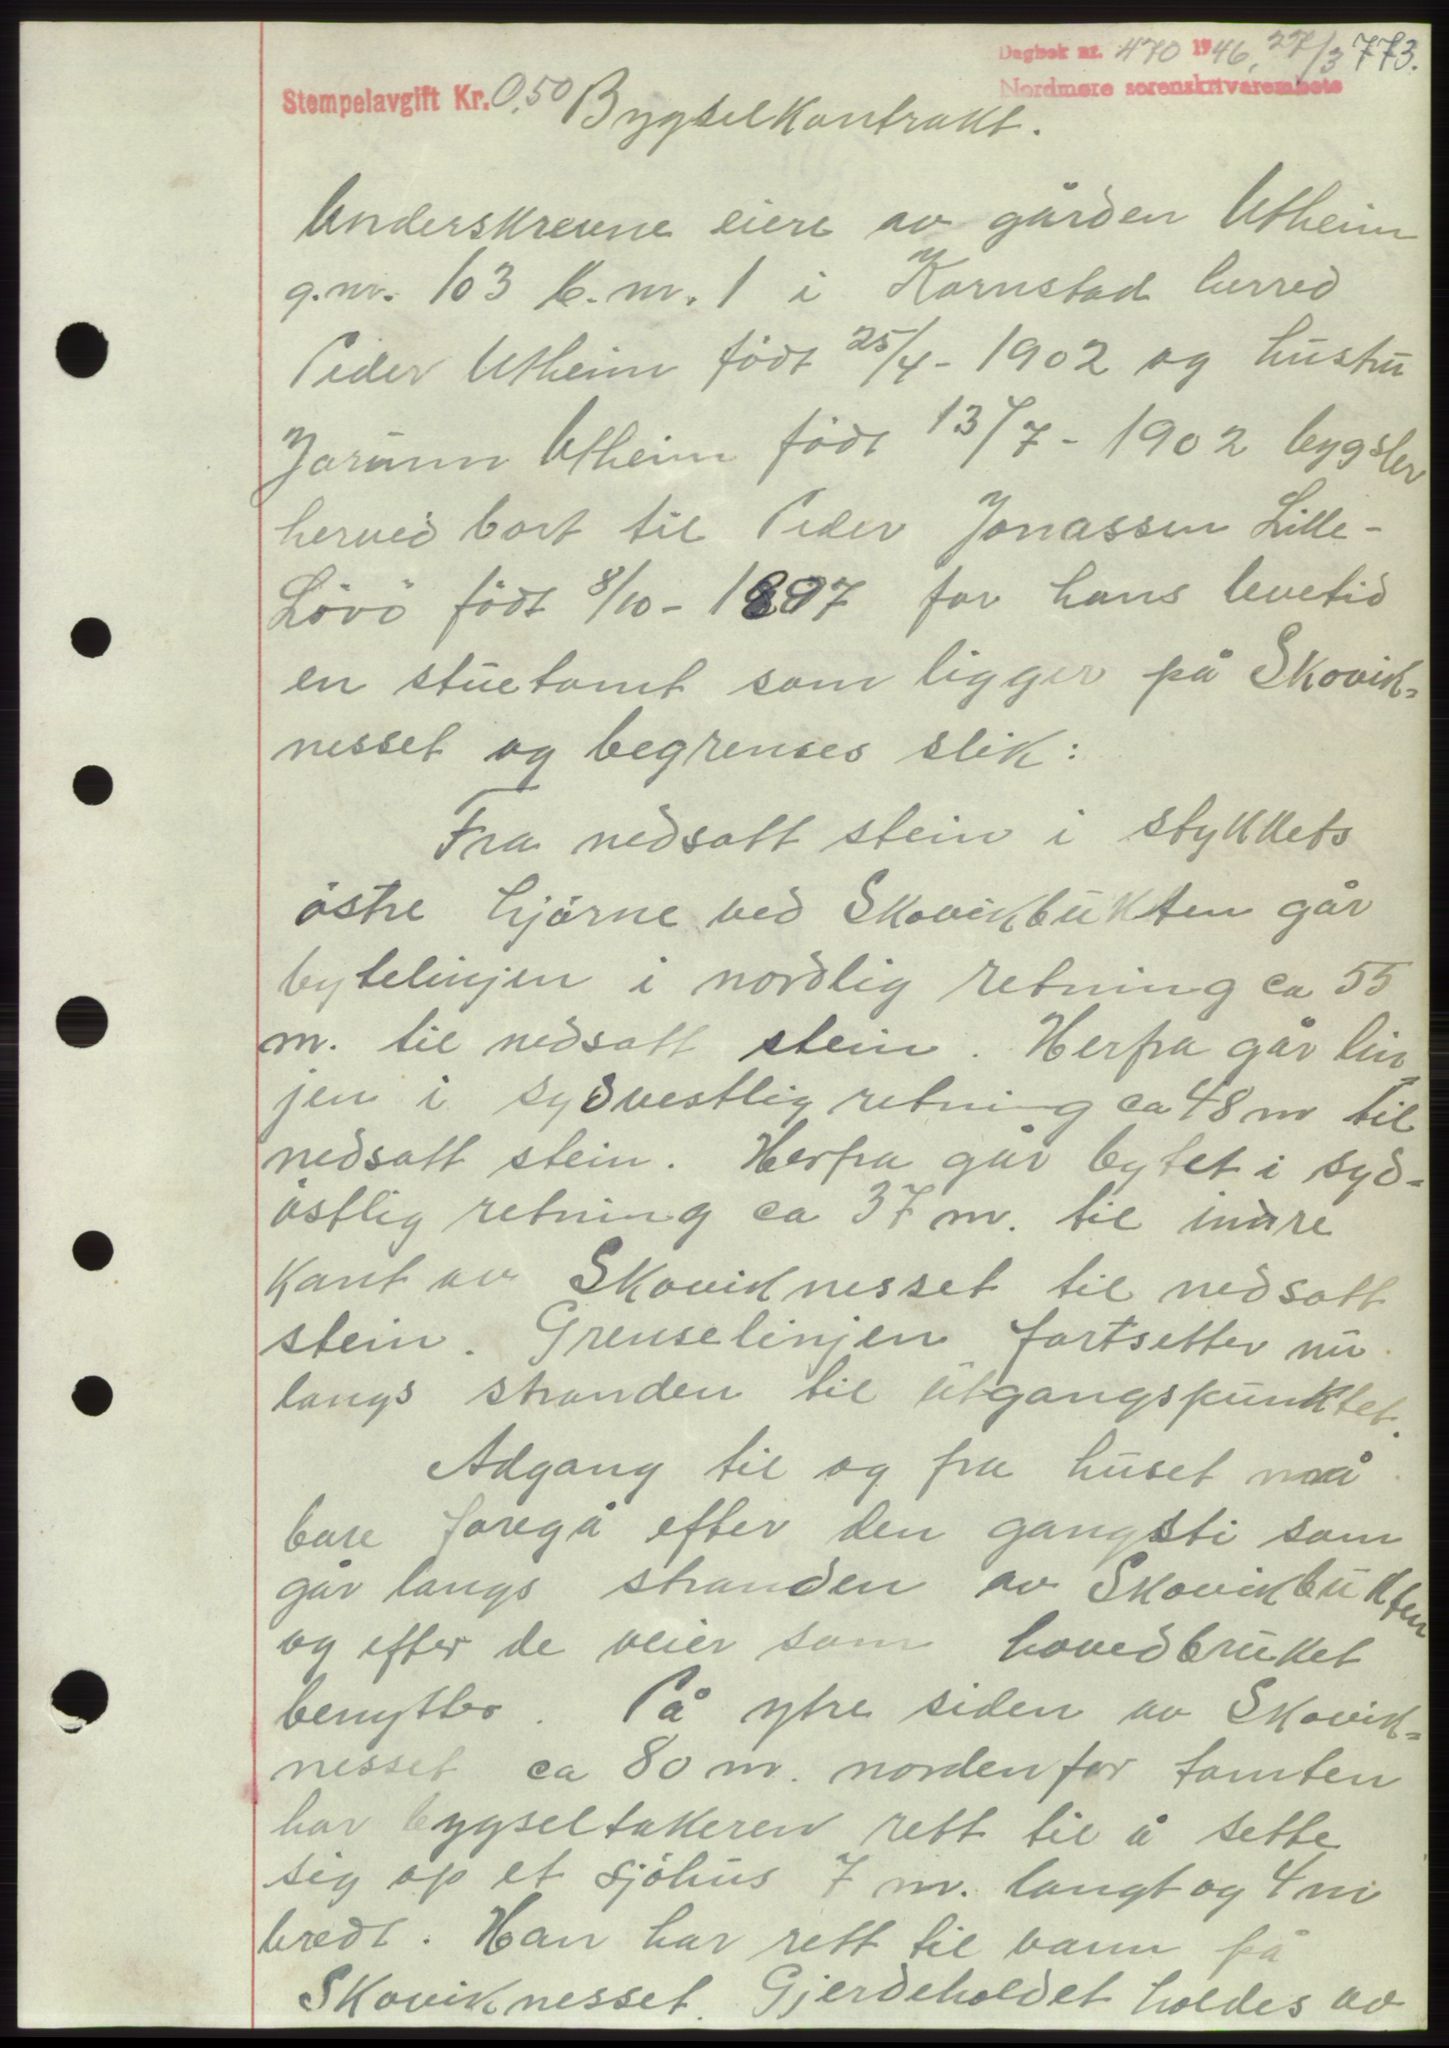 Dagbok nr. 470 1946, 27/3 773.
Nordmøre sorenskrivarembete
Stempelavgift Kr. 0,50 Bygselkontrakt.
Underskrevne eiere av gården Utheim
g.nr. 103 b.nr. 1 i Kornstad herred
Peder Utheim födt 25/4 - 1902 og hustru
Jorunn Utheim födt 13/7 - 1902 bygsler
herved bort til Peder Jonassen Lille-
Lövö födt 8/10 - 1897 for hans levetid
en stuetomt som ligger på Skovik-
nesset og begrenses slik:
Fra nedsatt stein i stykkets
östre hjörne ved Skovikbukten går
bytelinjen i nordlig retning ca 55
m. til nedsatt stein. Herfra går lin-
jen i sydvestlig retning ca 48 m til
nedsatt stein. Herfra går bytet i syd-
östlig retning ca 37 m. til indre
kant av Skoviknesset til nedsatt
stein. Grenselinjen fortsetter nu
langs stranden til utgangspunktet.
Adgang til og fra huset må
bare foregå efter den gangsti som
går langs stranden av Skovikbukten
og efter de veier som hovedbruket
benytter. På ytre siden av Skovik-
nesset ca 80 m. nordenfor tomten
har bygseltakeren rett til å sette
sig op et sjöhus 7 m. langt og 4 m
bredt. Han har rett til vann på
Skoviknesset. Gjerdeholdet holdes av